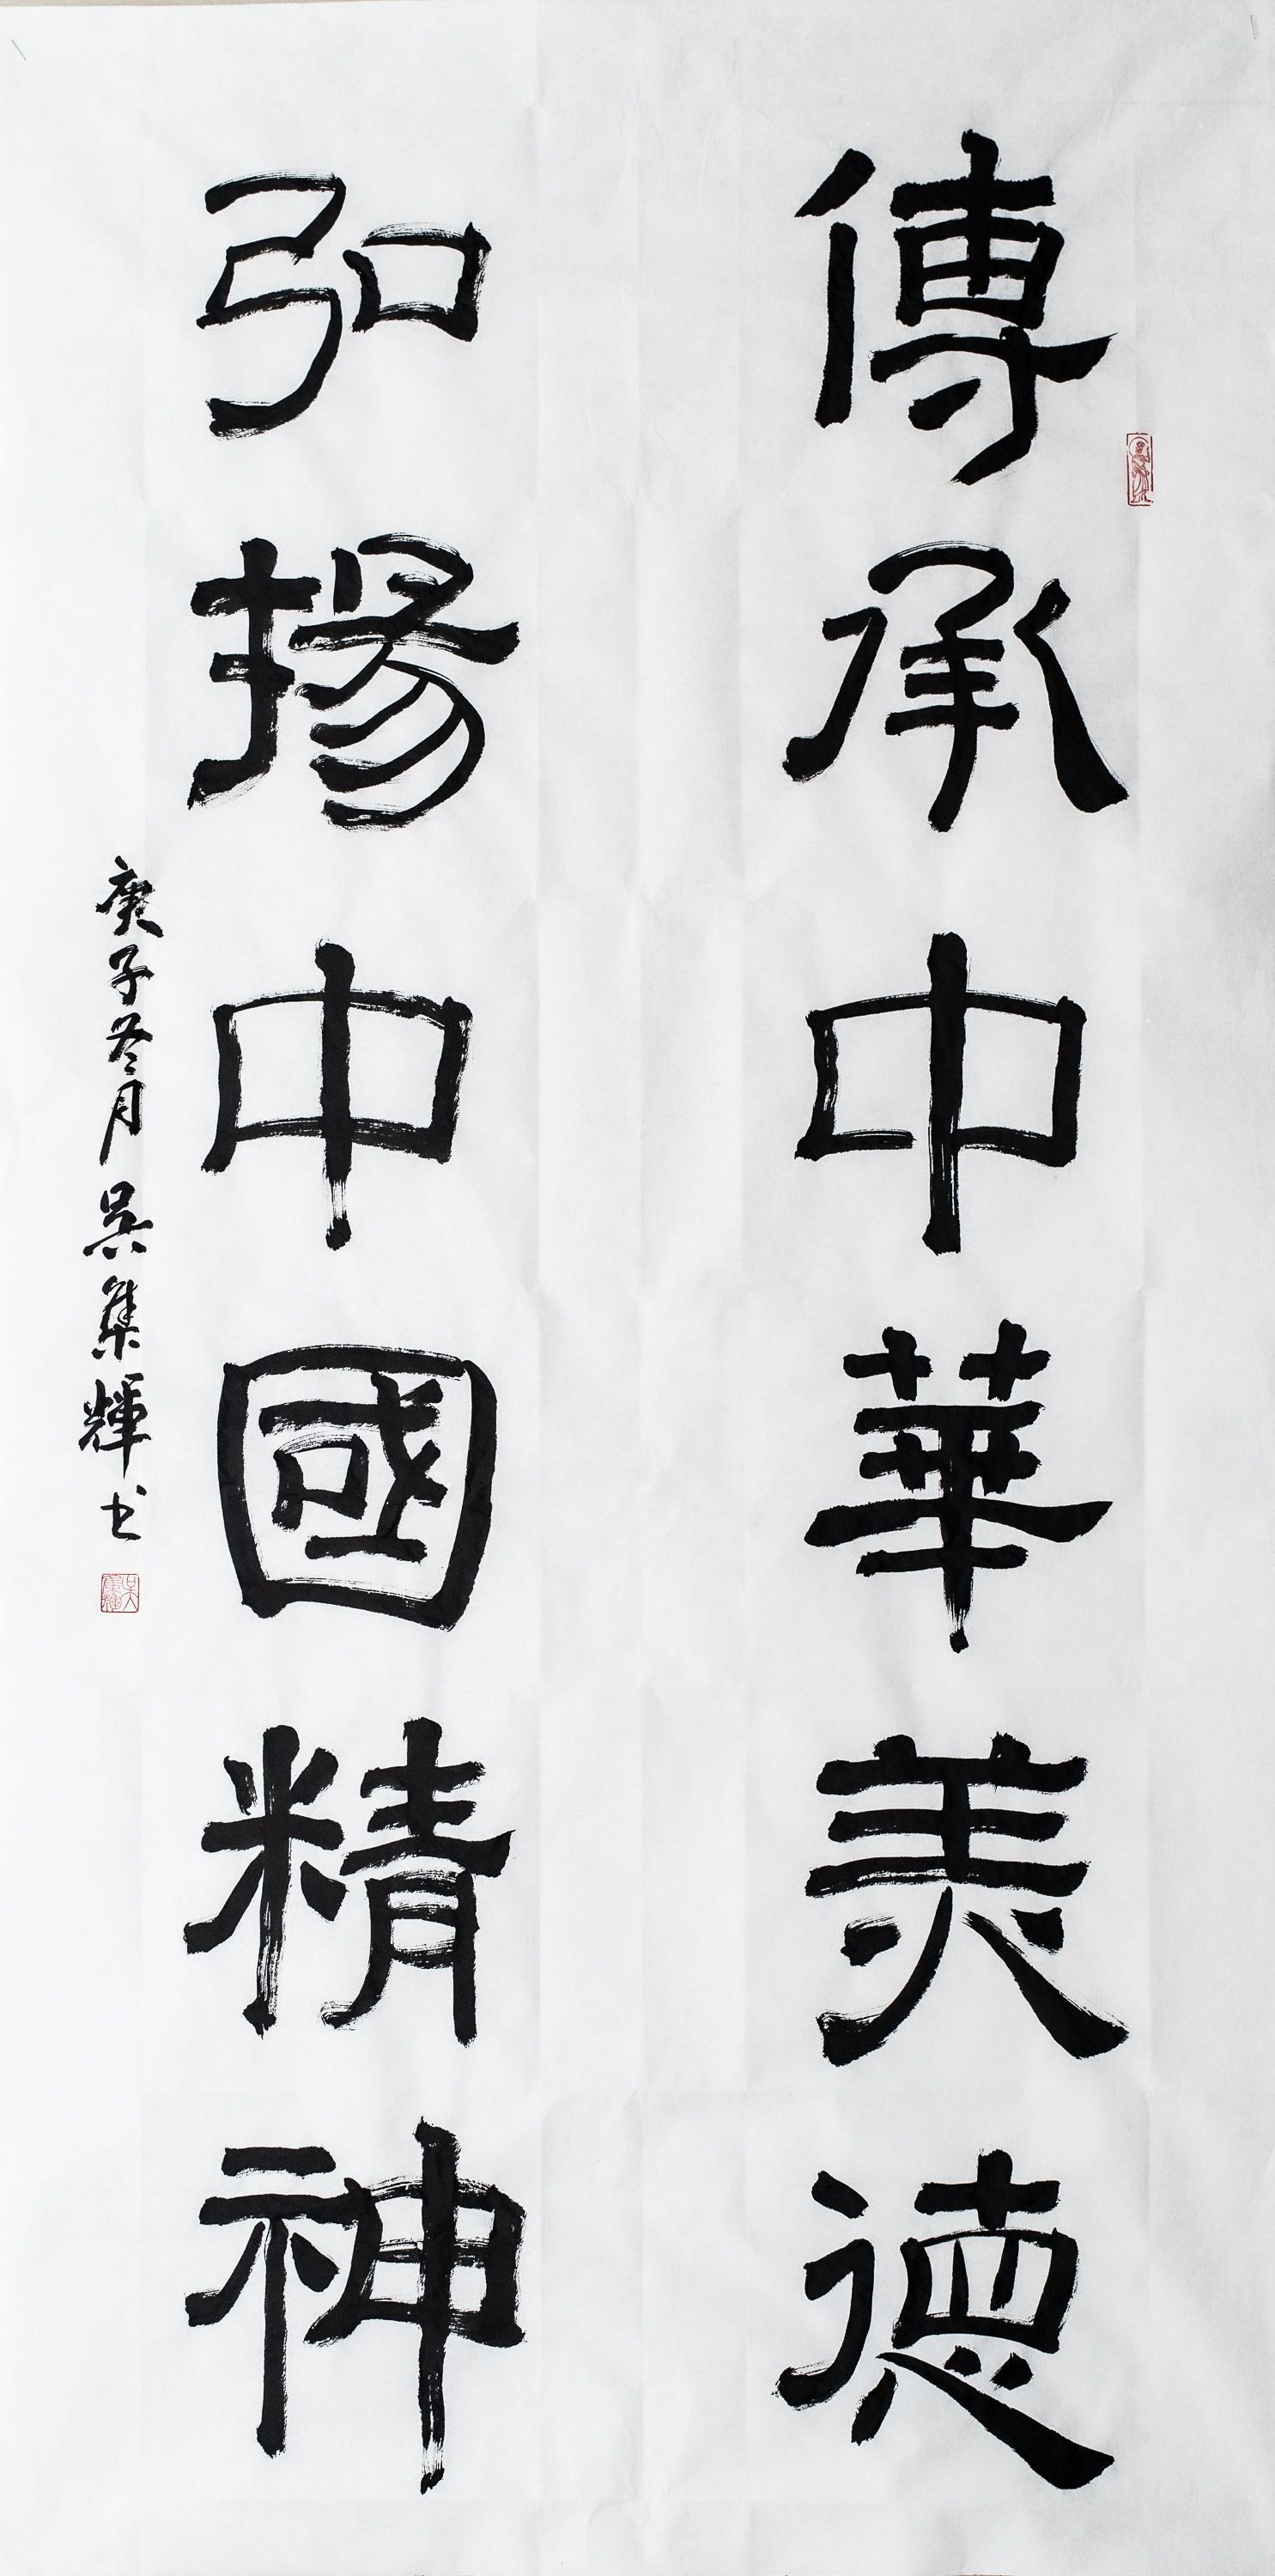 傳承中華美德
弘揚中國精神
庚子冬月 吳集輝书